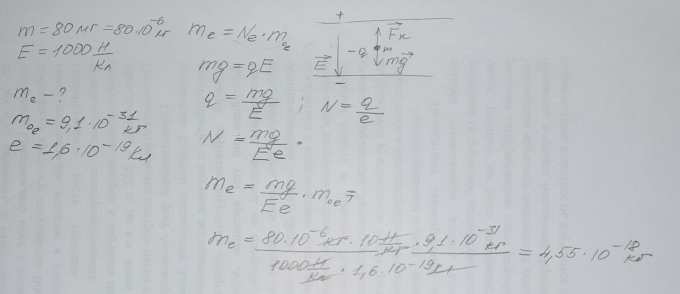 m = 80 мг = 80·10⁻⁶ кг
E = 1000 Н/Кл
mₑ - ?
m₀ₑ = 9,1·10⁻³¹ кг
e = 1,6·10⁻¹⁹ Кл
mₑ = Nₑ · m₀ₑ
mg = qE
q = mg/E ; N = q/e
N = mg/Ee ·
mₑ = mg/Ee · m₀ₑ =
mₑ = 80·10⁻⁶ кг · 10 Н/кг · 9,1·10⁻³¹ кг / 1000 Н/Кл · 1,6·10⁻¹⁹ Кл = 4,55·10⁻¹⁸ кг
+
F⃗к
-q m
E⃗ mg⃗
-